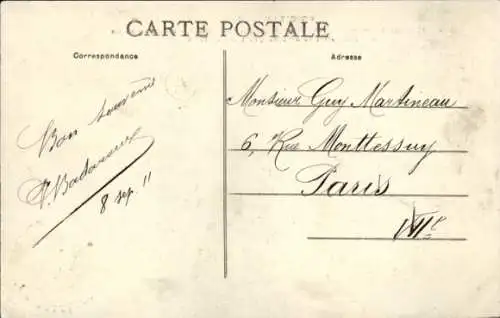 CARTE POSTALE
Correspondance
Adresse
Bon souvenir
8 sep. 11
Monsieur Guy Martineau
6, Rue Monttessuy
Paris
VIIe